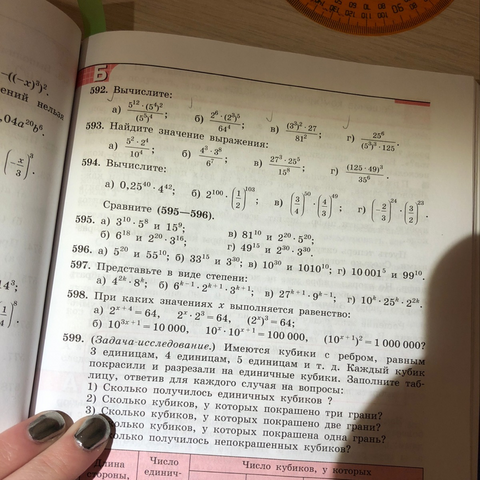 −((−x)³)².
ений нельз
,04a²⁰b⁶.
(−x/3)³
Б
592. Вычислите:
а) 5¹²·(5⁴)²/(5⁵)⁴; б) 2⁶·(2³)⁵/64⁴; в) (3⁵)²·27/81²; г) 25⁶/(5³)³·125
593. Найдите значение выражения:
а) 5²·2⁴/10⁴; б) 4³·3⁸/6⁷; в) 27³·25⁵/15⁸; г) (125·49)³/35⁶
594. Вычислите:
а) 0,25⁴⁰·4⁴²; б) 2¹⁰⁰·(1/2)¹⁰³; в) (3/4)⁵⁰·(4/3)⁴⁹; г) (−2/3)²⁴·(3/2)²³.
Сравните (595—596).
595. а) 3¹⁰·5⁸ и 15⁹; в) 81¹⁰ и 2²⁰·5²⁰;
б) 6¹⁸ и 2²⁰·3¹⁶; г) 49¹⁵ и 2³⁰·3³⁰.
596. а) 5²⁰ и 55¹⁰; б) 33¹⁵ и 3³⁰; в) 10³⁰ и 1010¹⁰; г) 10 001⁵ и 99¹⁰.
597. Представьте в виде степени:
а) 4²ᵏ·8ᵏ; б) 6ᵏ⁻¹·2ᵏ⁺¹·3ᵏ⁺¹; в) 27ᵏ⁺¹·9ᵏ⁻¹; г) 10ᵏ·25ᵏ·2²ᵏ
598. При каких значениях x выполняется равенство:
а) 2ˣ⁺⁴=64, 2ˣ·2³=64, (2ˣ)³=64;
б) 10³ˣ⁺¹=10 000, 10ˣ·10ˣ⁺¹=100 000, (10ˣ⁺¹)²=1 000 000?
599. (Задача-исследование.) Имеются кубики с ребром, равным
3 единицам, 4 единицам, 5 единицам и т. д. Каждый кубик
покрасили и разрезали на единичные кубики. Заполните таб-
лицу, ответив для каждого случая на вопросы:
1) Сколько получилось единичных кубиков ?
2) Сколько кубиков, у которых покрашено три грани?
3) Сколько кубиков, у которых покрашено две грани?
колько кубиков, у которых покрашена одна грань?
олько получилось непокрашенных кубиков?
Длина Число Число кубиков, у которых
стороны, единич-